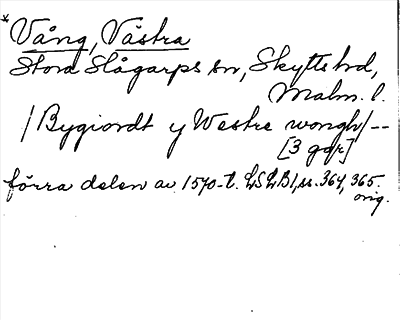 * Vång, Västra
Stora Slågarps sn, Skytts hd,
Malm. l.
/Bygiordt y Westre wongh/--
[3 ggr]
förra delen av 1570-t. LSLB1, ss. 364, 365.
orig.